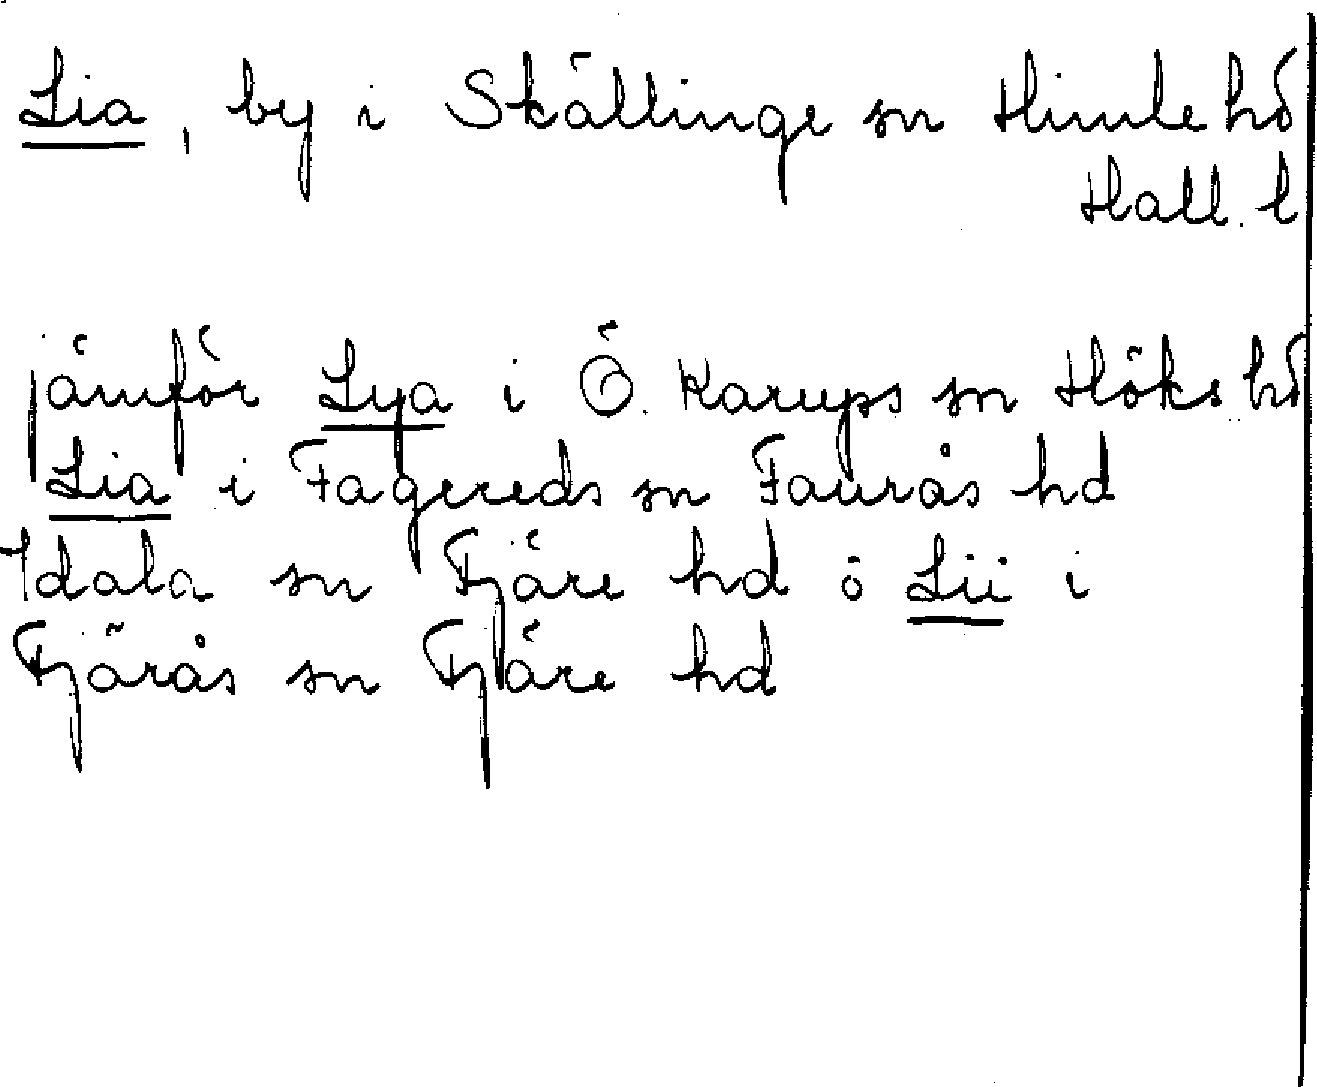 Lia, by i Skällinge sn Himle hd
Hall. l
jämför Lya i Ö. Karups sn Höks hd
Lia i Fagereds sn Faurås hd
Idala sn Fjäre hd o Lii i
Fjärås sn Fjäre hd